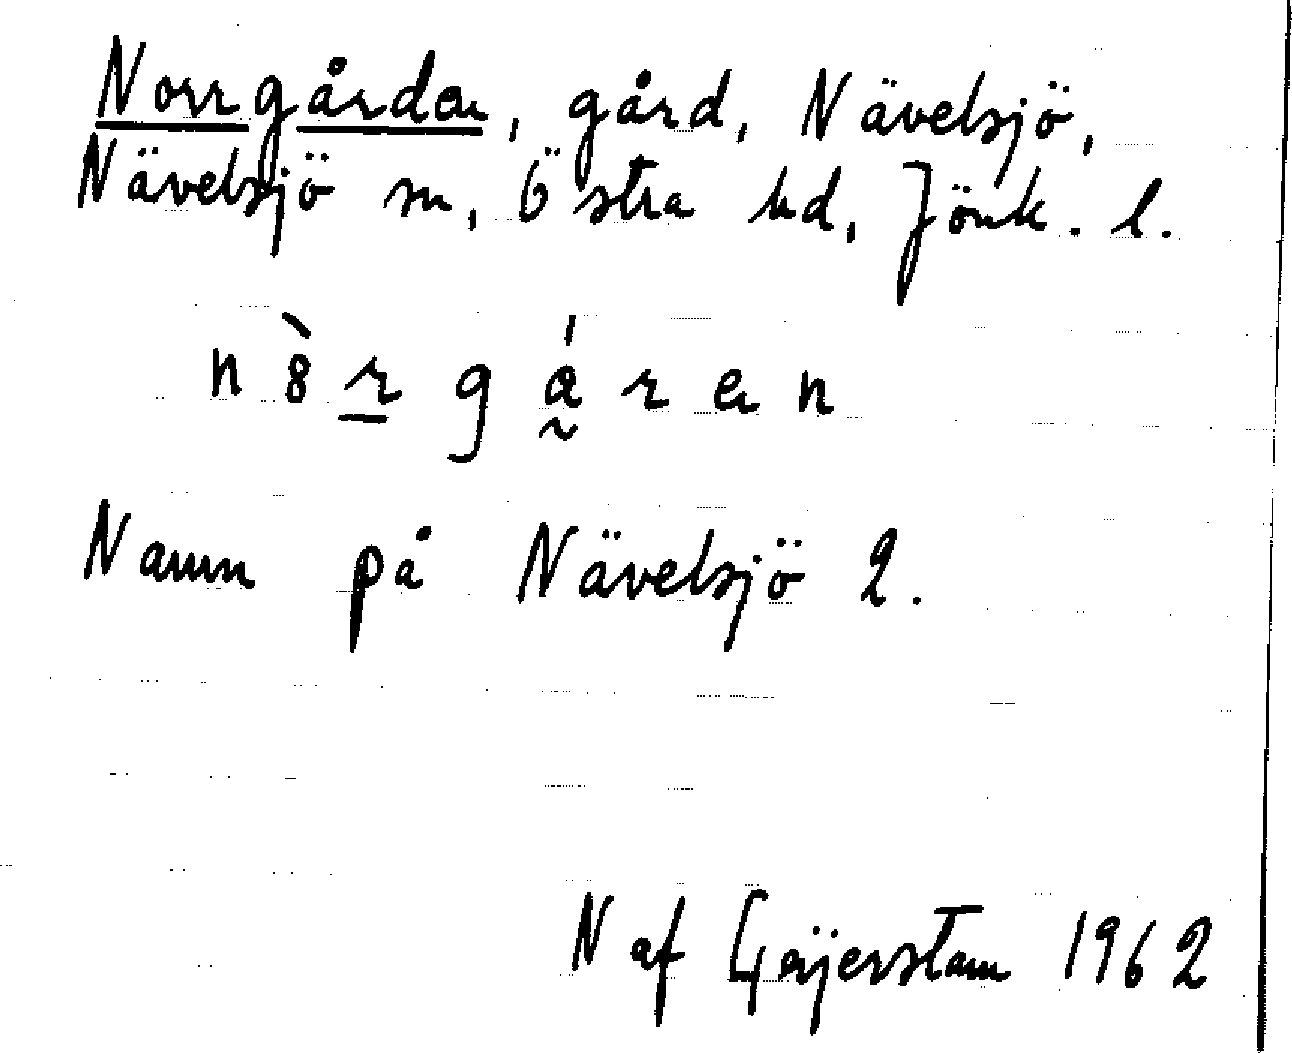 Norrgården, gård, Nävelsjö,
Nävelsjö sn, Östra hd, Jönk. l.
n 8̀ r̲ g á̰ r e n
Namn på Nävelsjö 2.
N af Geijerstam 1962